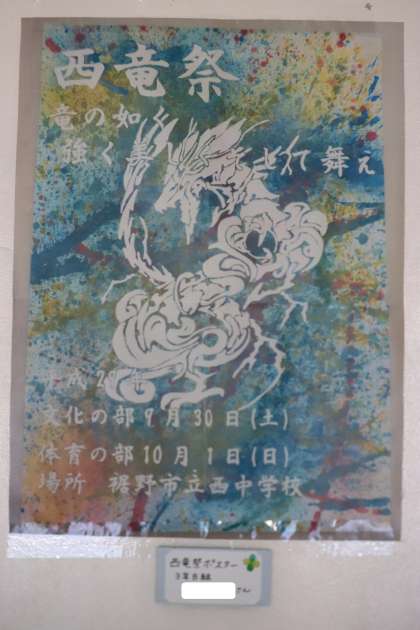 西竜祭
竜の如く
強く
舞え
平成29年
文化の部9月30日(土)
体育の部10月1日(日)
場所 裾野市立西中学校
西竜祭ポスター
さん